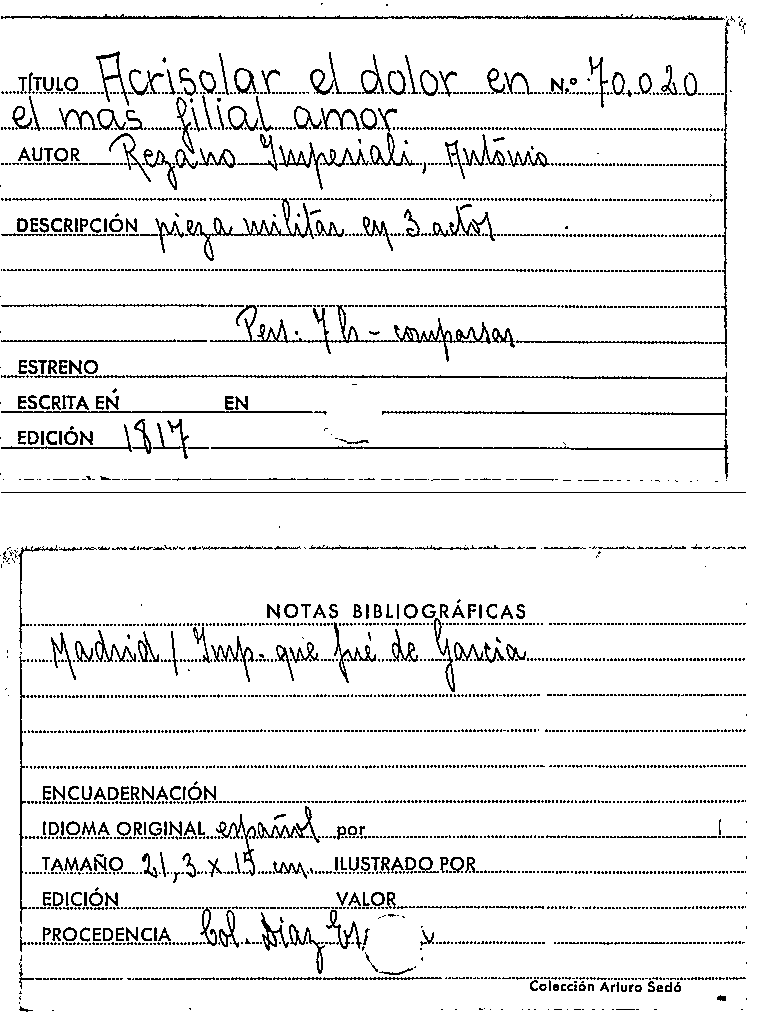 TÍTULO Acrisolar el dolor en N.º 70.020
el mas filial amor
AUTOR Rezano Imperiali, António
DESCRIPCIÓN pieza militar en 3 actos
Pers. 7 h - comparsas
ESTRENO
ESCRITA EN EN
EDICIÓN 1817
NOTAS BIBLIOGRÁFICAS
Madrid / Imp. que fué de Garcia
ENCUADERNACIÓN
IDIOMA ORIGINAL español por
TAMAÑO 21,3 x 15 cm. ILUSTRADO POR
EDICIÓN VALOR
PROCEDENCIA Col. Díaz
Colección Arturo Sedó